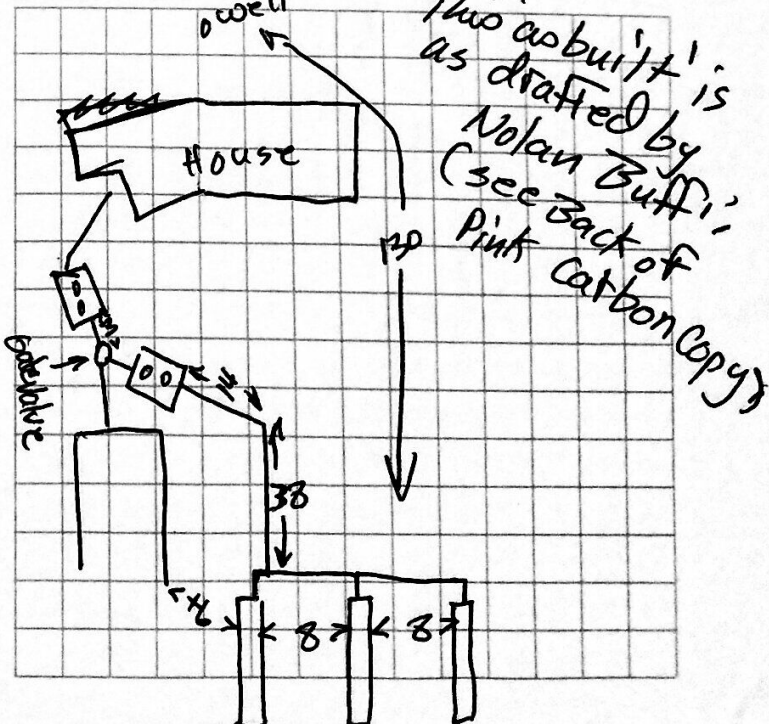 well
This as built is
as drafted by
Nolan Buffi
(see Back of
Pink carbon copy)
House
130
gatevalve
38
8
8